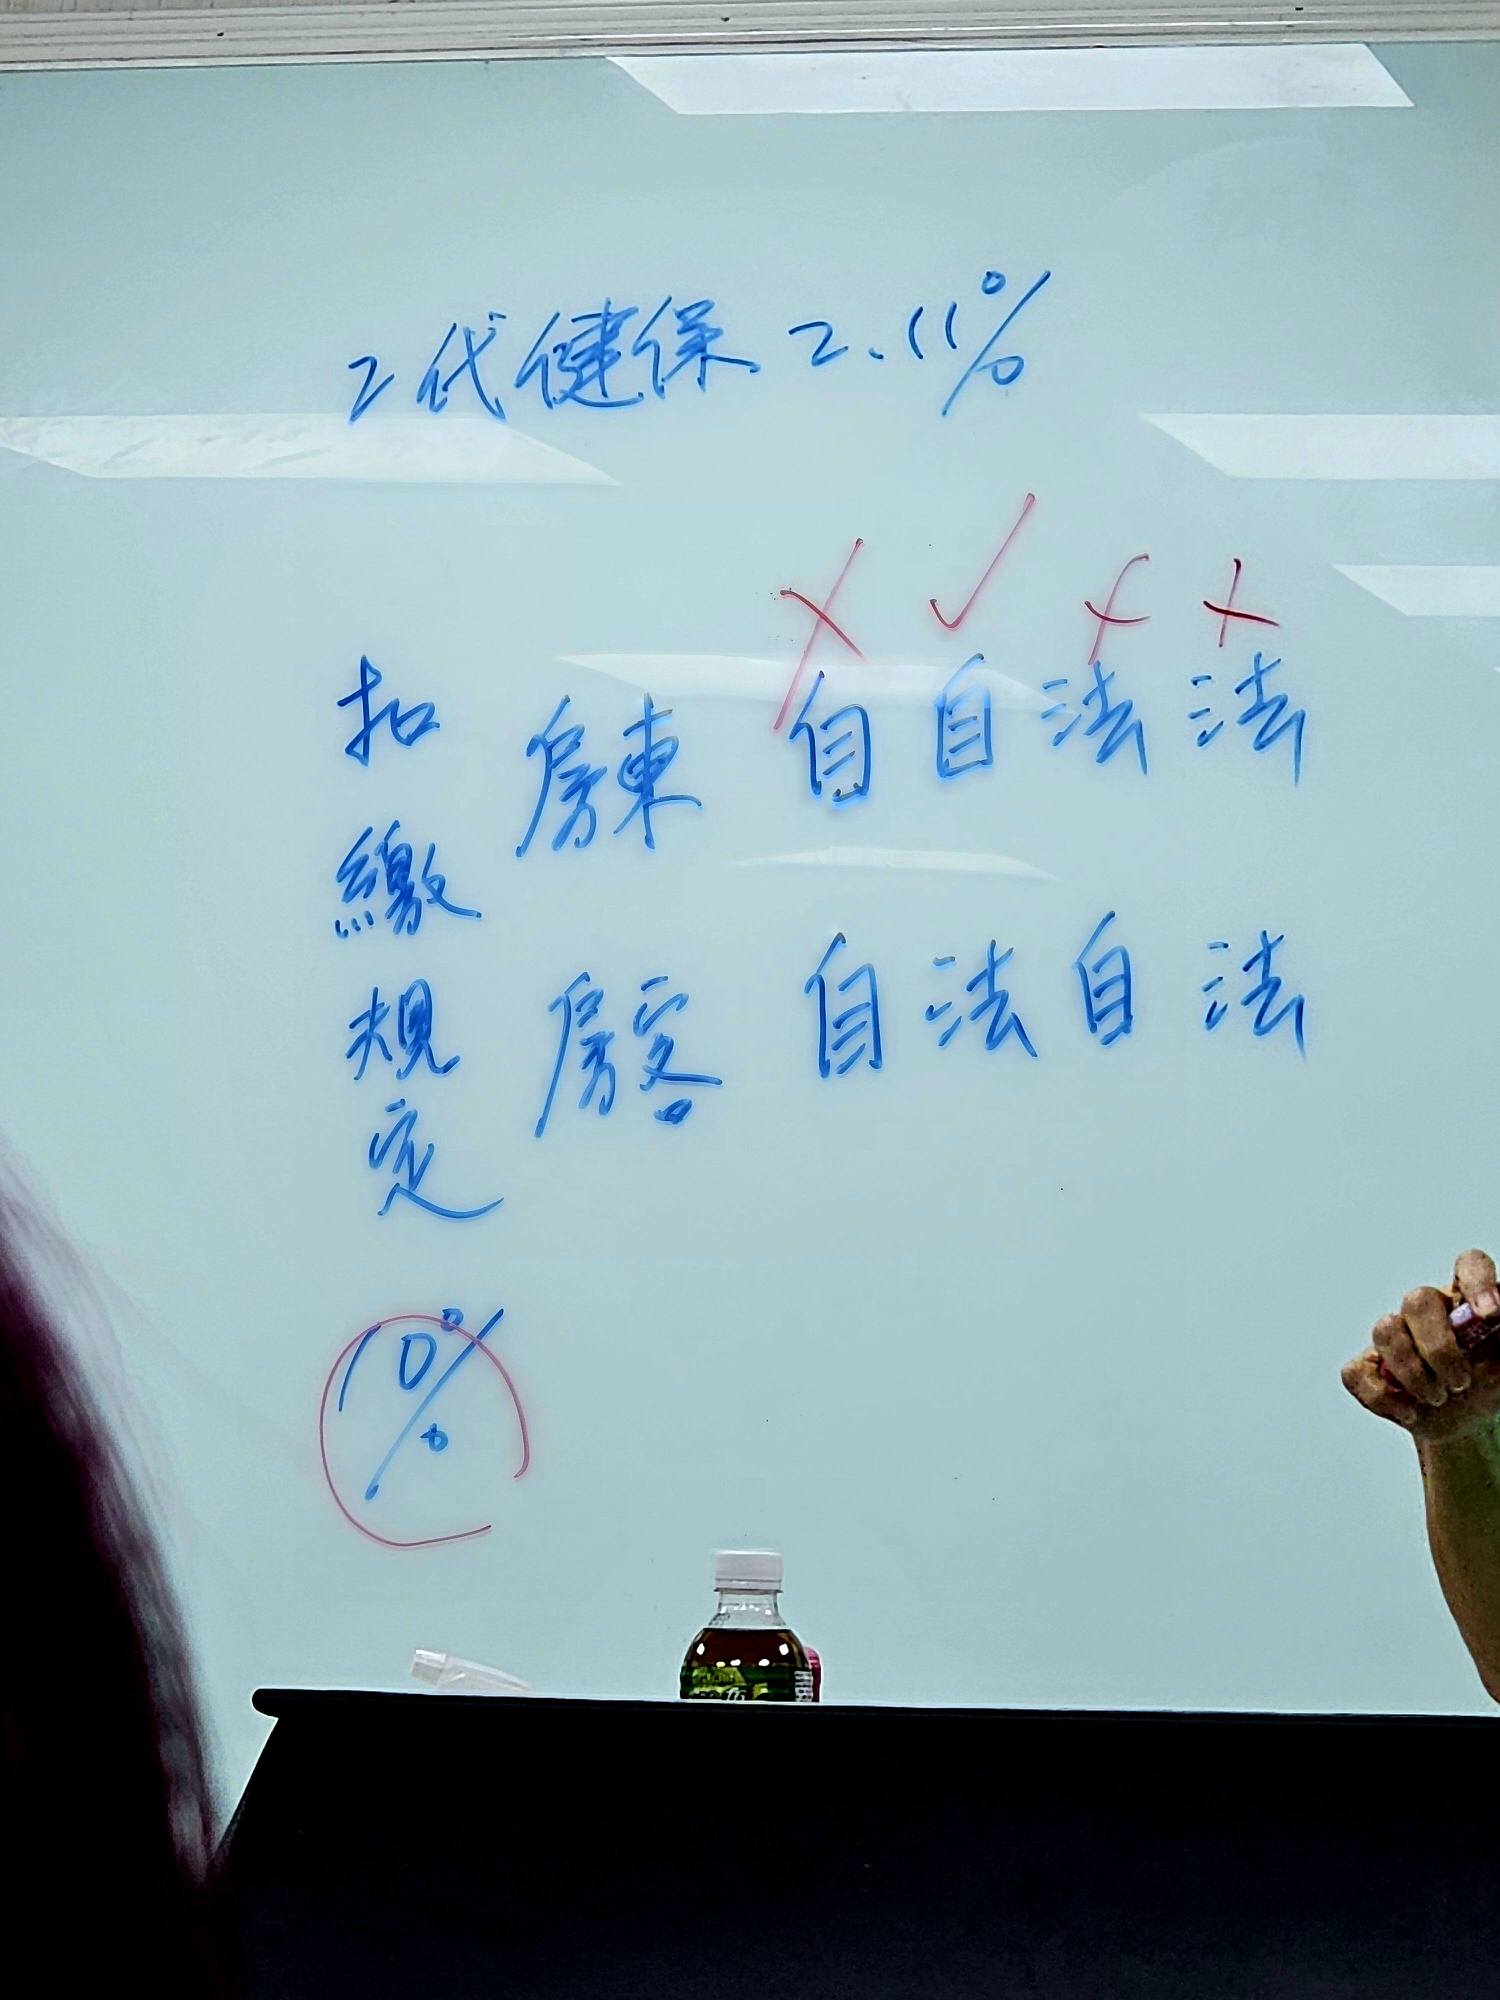 2代健保 2.11%
扣繳規定
10%
房東 自 自 法 法
房客 自 法 自 法